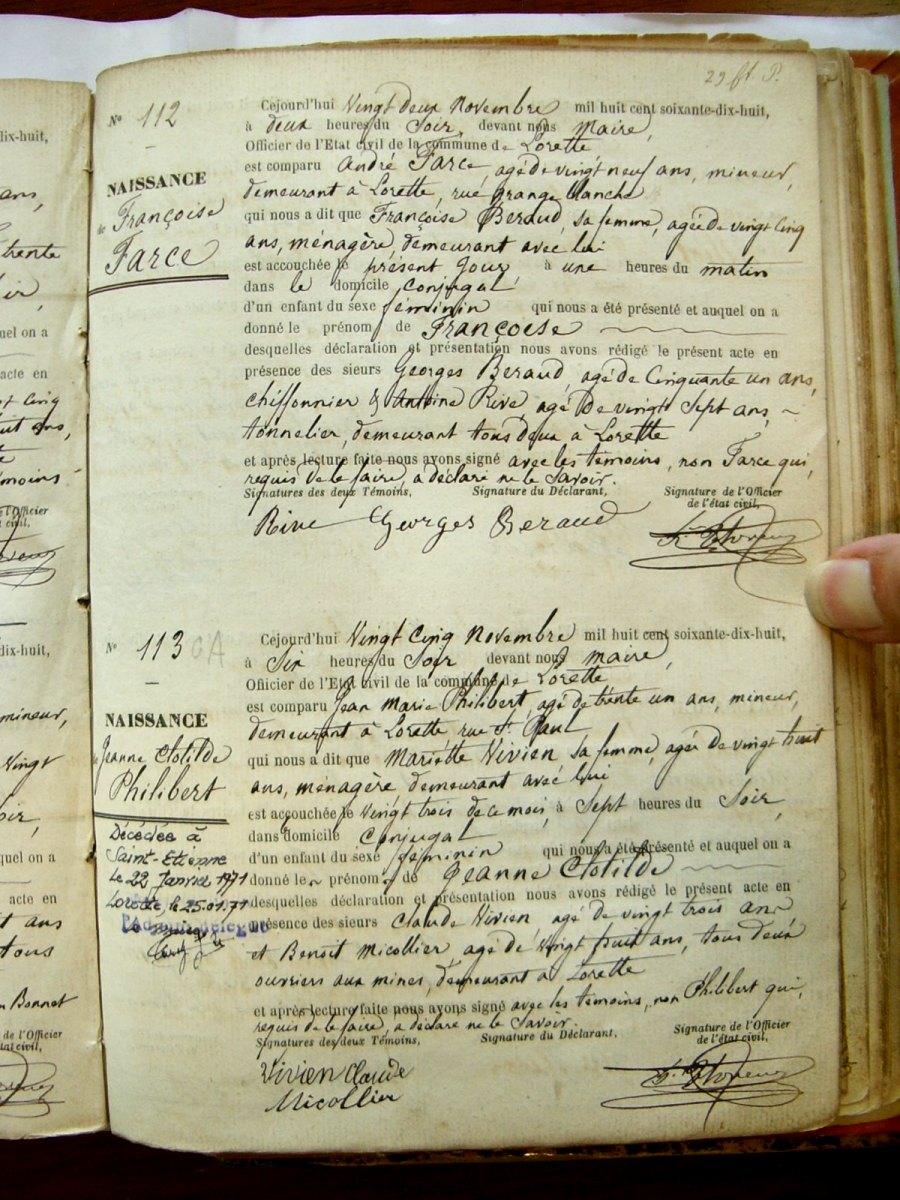 29 ft P.
Nº 112
NAISSANCE
de Françoise
Farce
Cejourd'hui Vingt deux Novembre mil huit cent soixante-dix-huit,
à deux heures du Soir, devant nous Maire,
Officier de l'Etat civil de la commune de Lorette
est comparu André Farce, agé de vingt neuf ans, mineur,
demeurant à Lorette, rue Grange Blanche
qui nous a dit que Françoise Beraud, sa femme, agée de vingt Cinq
ans, ménagère, demeurant avec lui
est accouchée le présent Jour, à une heures du matin
dans le domicile Conjugal
d'un enfant du sexe féminin qui nous a été présenté et auquel on a
donné le prénom de Françoise
desquelles déclaration et présentation nous avons rédigé le présent acte en
présence des sieurs Georges Beraud, agé de Cinquante un ans,
Chiffonnier & Antoine Rive, agé de vingt Sept ans,
tonnelier, demeurant tous deux à Lorette
et après lecture faite nous avons signé avec les témoins, non Farce qui,
requis de le faire, a déclaré ne le Savoir.
Signatures des deux Témoins, Signature du Déclarant, Signature de l'Officier
de l'état civil,
Rive Georges Beraud
Nº 113
NAISSANCE
de Jeanne Clotilde
Philibert
Décédée à
Saint-Etienne
le 22 Janvier 1971
Lorette, le 25.01.71
Cejourd'hui Vingt Cinq Novembre mil huit cent soixante-dix-huit,
à Six heures du Soir devant nous Maire,
Officier de l'Etat civil de la commune de Lorette
est comparu Jean Marie Philibert, agé de trente un ans, mineur,
demeurant à Lorette, rue St Paul
qui nous a dit que Mariette Vivien sa femme, agée de vingt huit
ans, ménagère demeurant avec lui
est accouchée le Vingt trois de ce mois, à Sept heures du Soir,
dans domicile Conjugal
d'un enfant du sexe féminin qui nous a été présenté et auquel on a
donné le prénom de Jeanne Clotilde
desquelles déclaration et présentation nous avons rédigé le présent acte en
présence des sieurs Claude Vivien agé de vingt trois ans
et Benoit Micollier, agé de Vingt huit ans, tous deux
ouvriers aux mines, demeurant à Lorette
et après lecture faite nous avons signé avec les témoins, non Philibert qui,
requis de le faire, a déclaré ne le Savoir.
Signatures des deux Témoins, Signature du Déclarant, Signature de l'Officier
de l'état civil,
Vivien Claude
Micollier